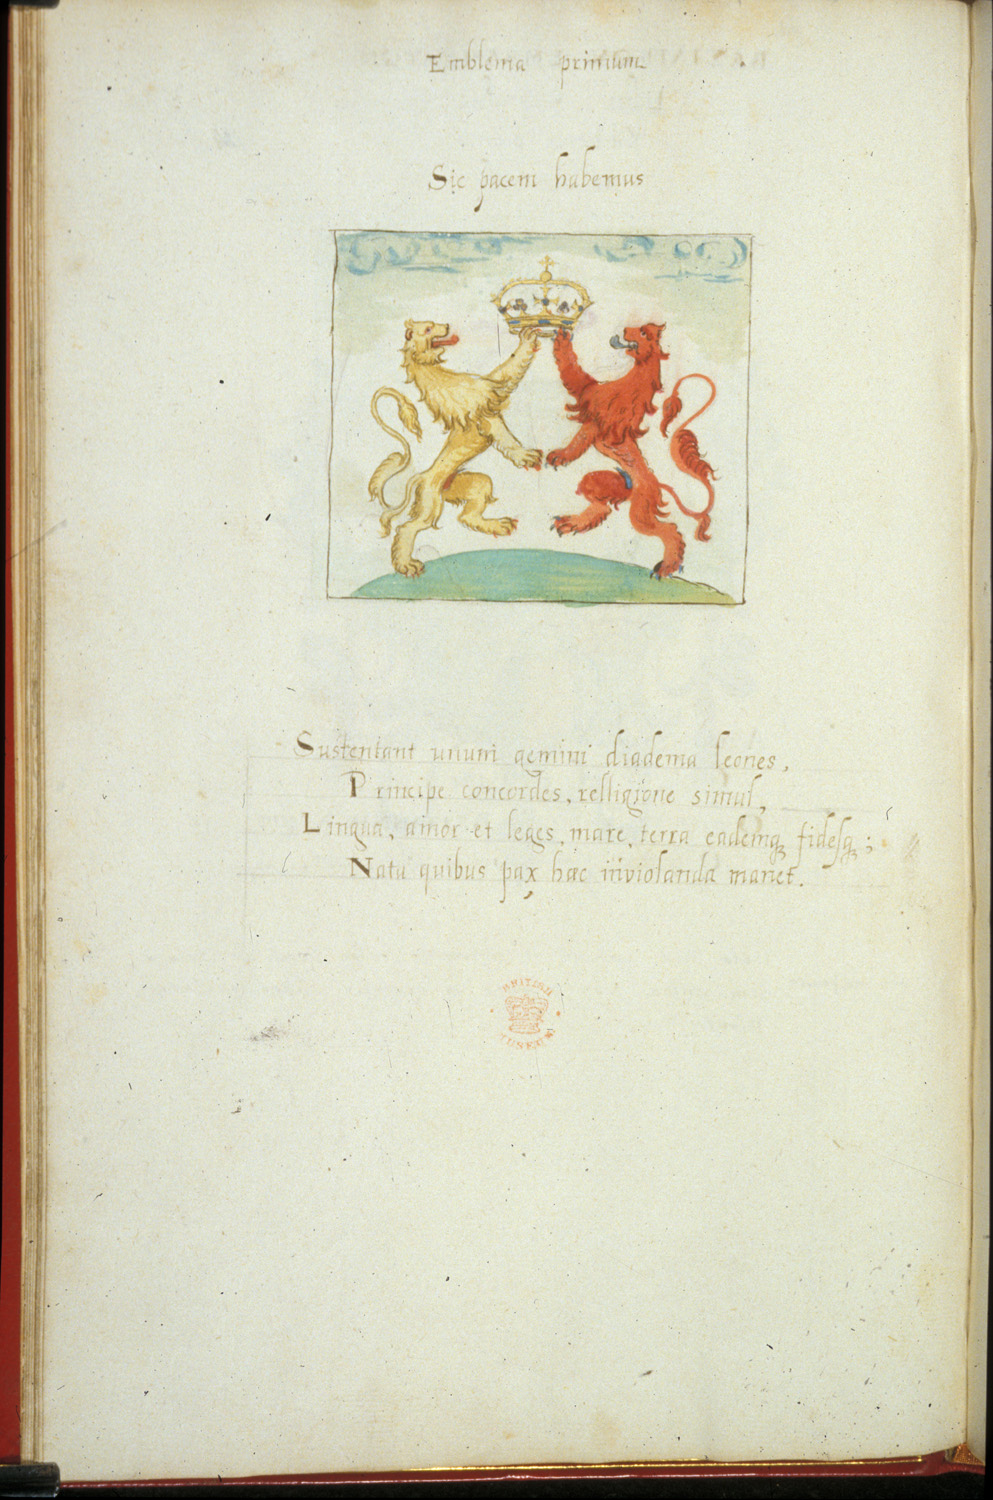 Emblema primum
Sic pacem habemus
Sustentant unum gemini diadema leones,
Principe concordes, relligione simul,
Lingua, amor et leges, mare, terra eademq fidesq;
Natu quibus pax hæc inviolanda manet.
BRITISH
MUSEUM